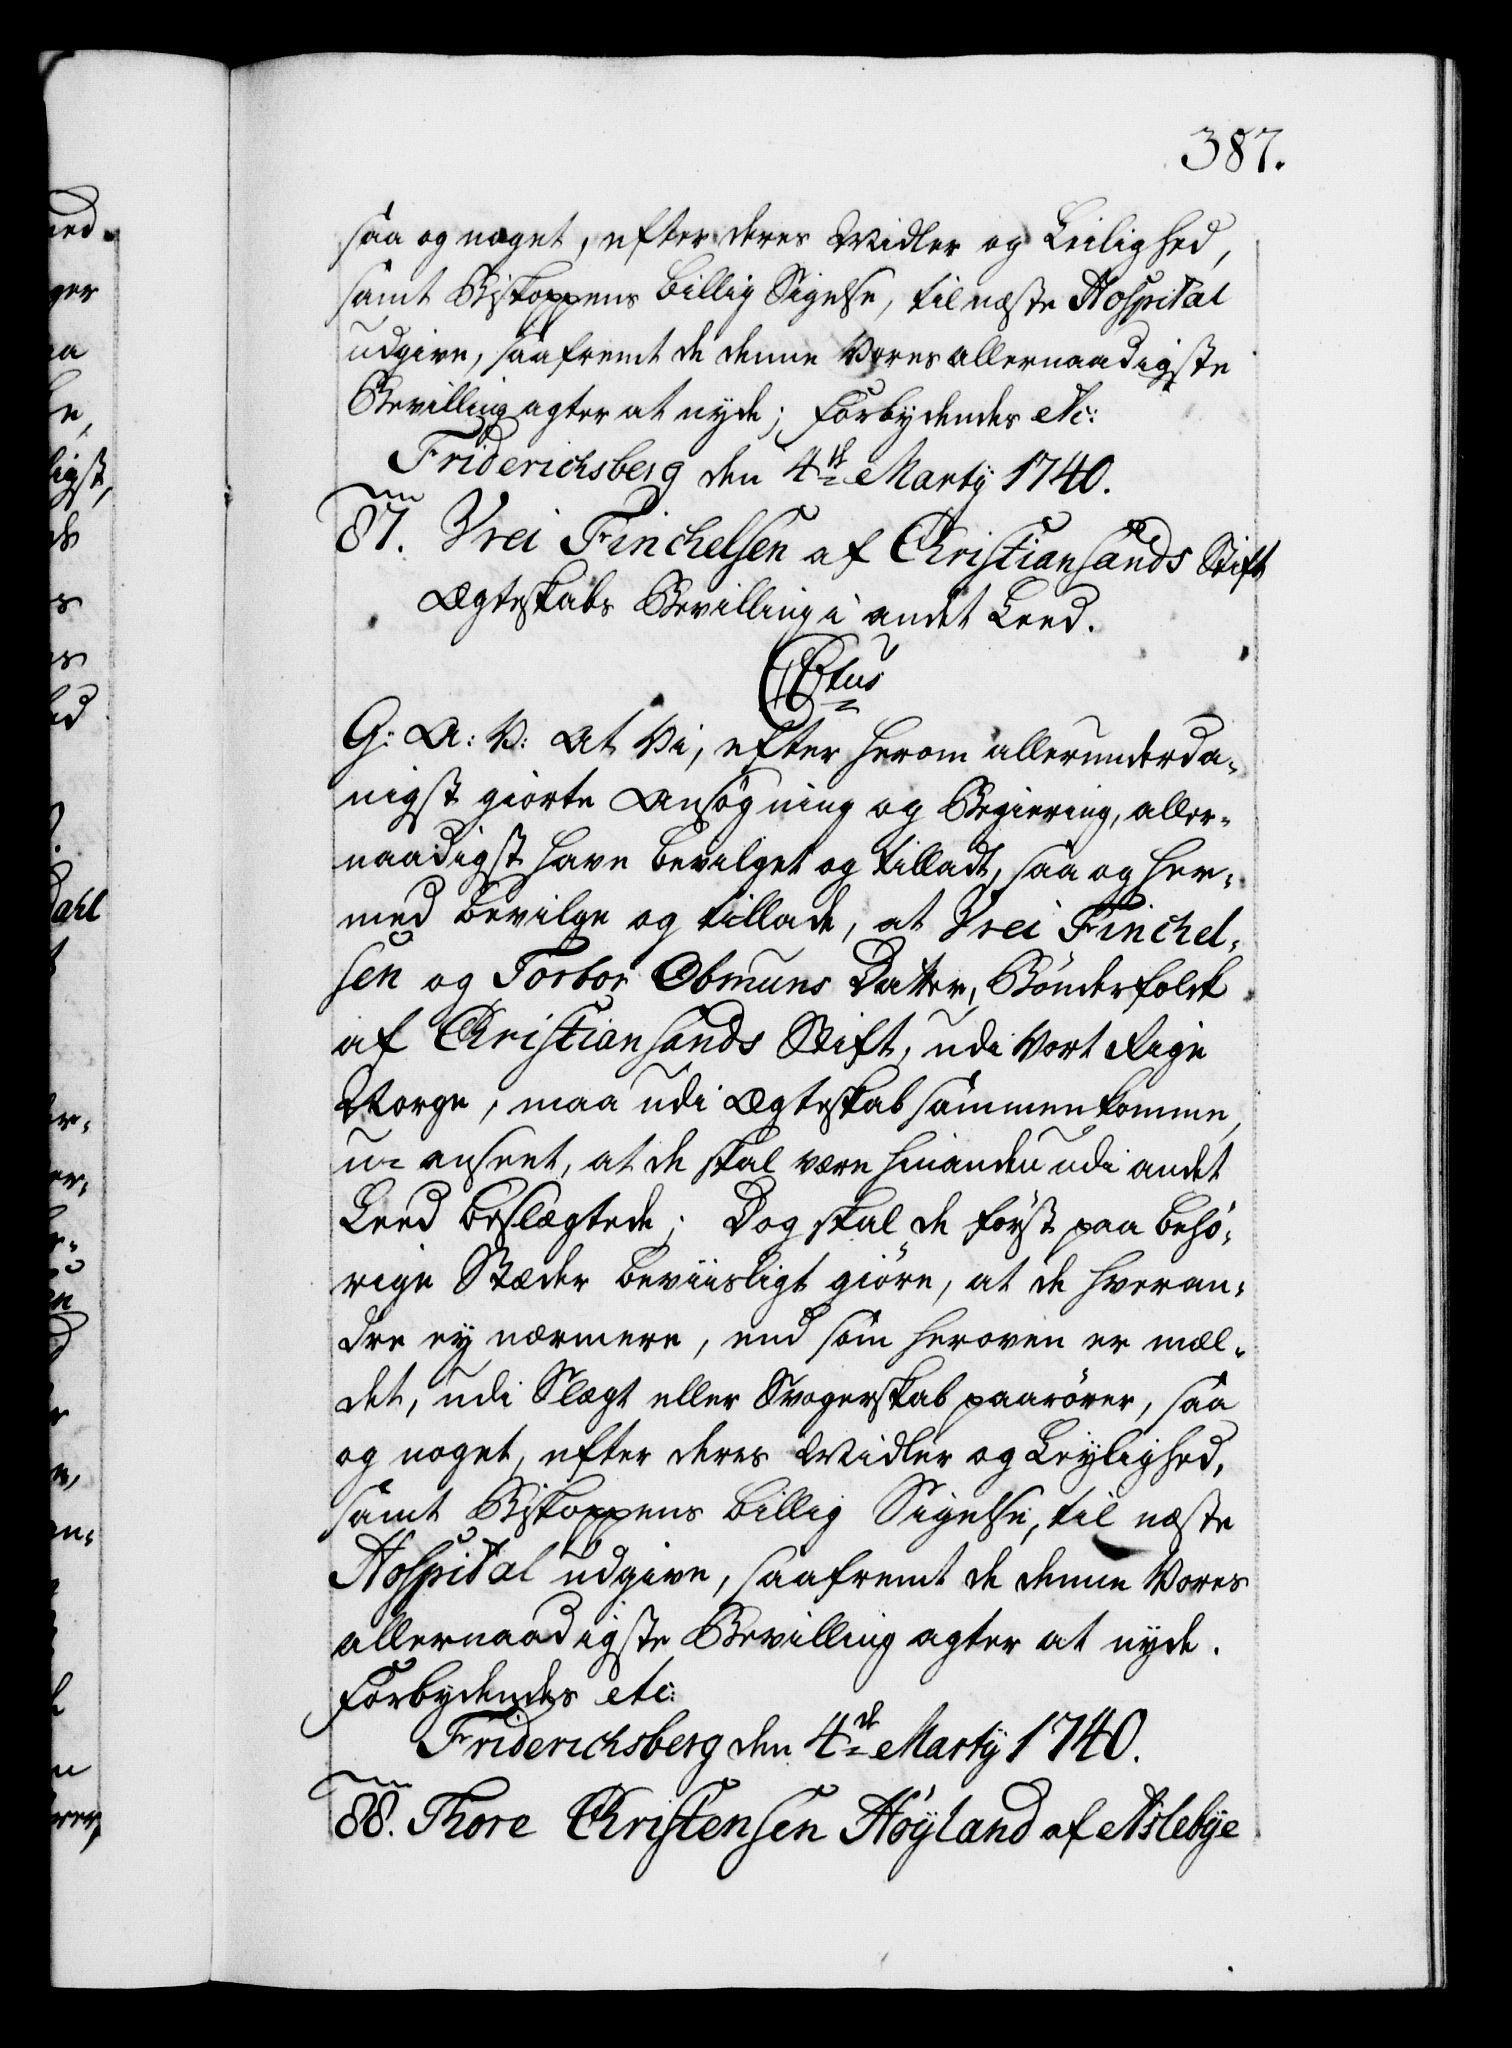 387.
saa og noget, efter deres Midler og Leilighed,
samt Biskoppens billig Sigelse, til næste Hospital
udgive, saafremt de denne Vores allernaadigste
Bevilling agter at nyde; Forbydendes etc:
Friderichsberg den 4de Martij 1740.
87. Vrei Finchelsen af Christiansands Stift
Ægteskabs Bevilling i andet Leed.
C6tus
G: A: V: At Vi, efter herom allerunderda-
nigst giorte Ansøgning og Begiering, aller-
naadigst have bevilget og tilladt, saa og her-
med bevilge og tillade, at Vrei Finchel-
sen og Torbor Obmuns Datter, Bönderfolk
af Christiansands Stift, udi Vort Rige
Norge, maa udi Ægteskab sammenkomme,
u-anseet, at de skal være hinanden udi andet
Leed beslægtede; Dog skal de først paa behö-
rige Stæder beviisligt giöre, at de hveran-
dre ey nærmere, end som heroven er mel-
det, udi Slægt eller Svogerskab paarörer, saa
og noget, efter deres Midler og Leylighed,
samt Biskoppens billig Sigelse, til næste
Hospital udgive, saafremt de denne Vores
allernaadigste Bevilling agter at nyde.
Forbydendes etc:
Friderichsberg den 4de Martij 1740.
88. Thore Christensen Höyland af Aslebye
ned-
ger
aa
he,
ligst,
ds
es
Dahl
er-